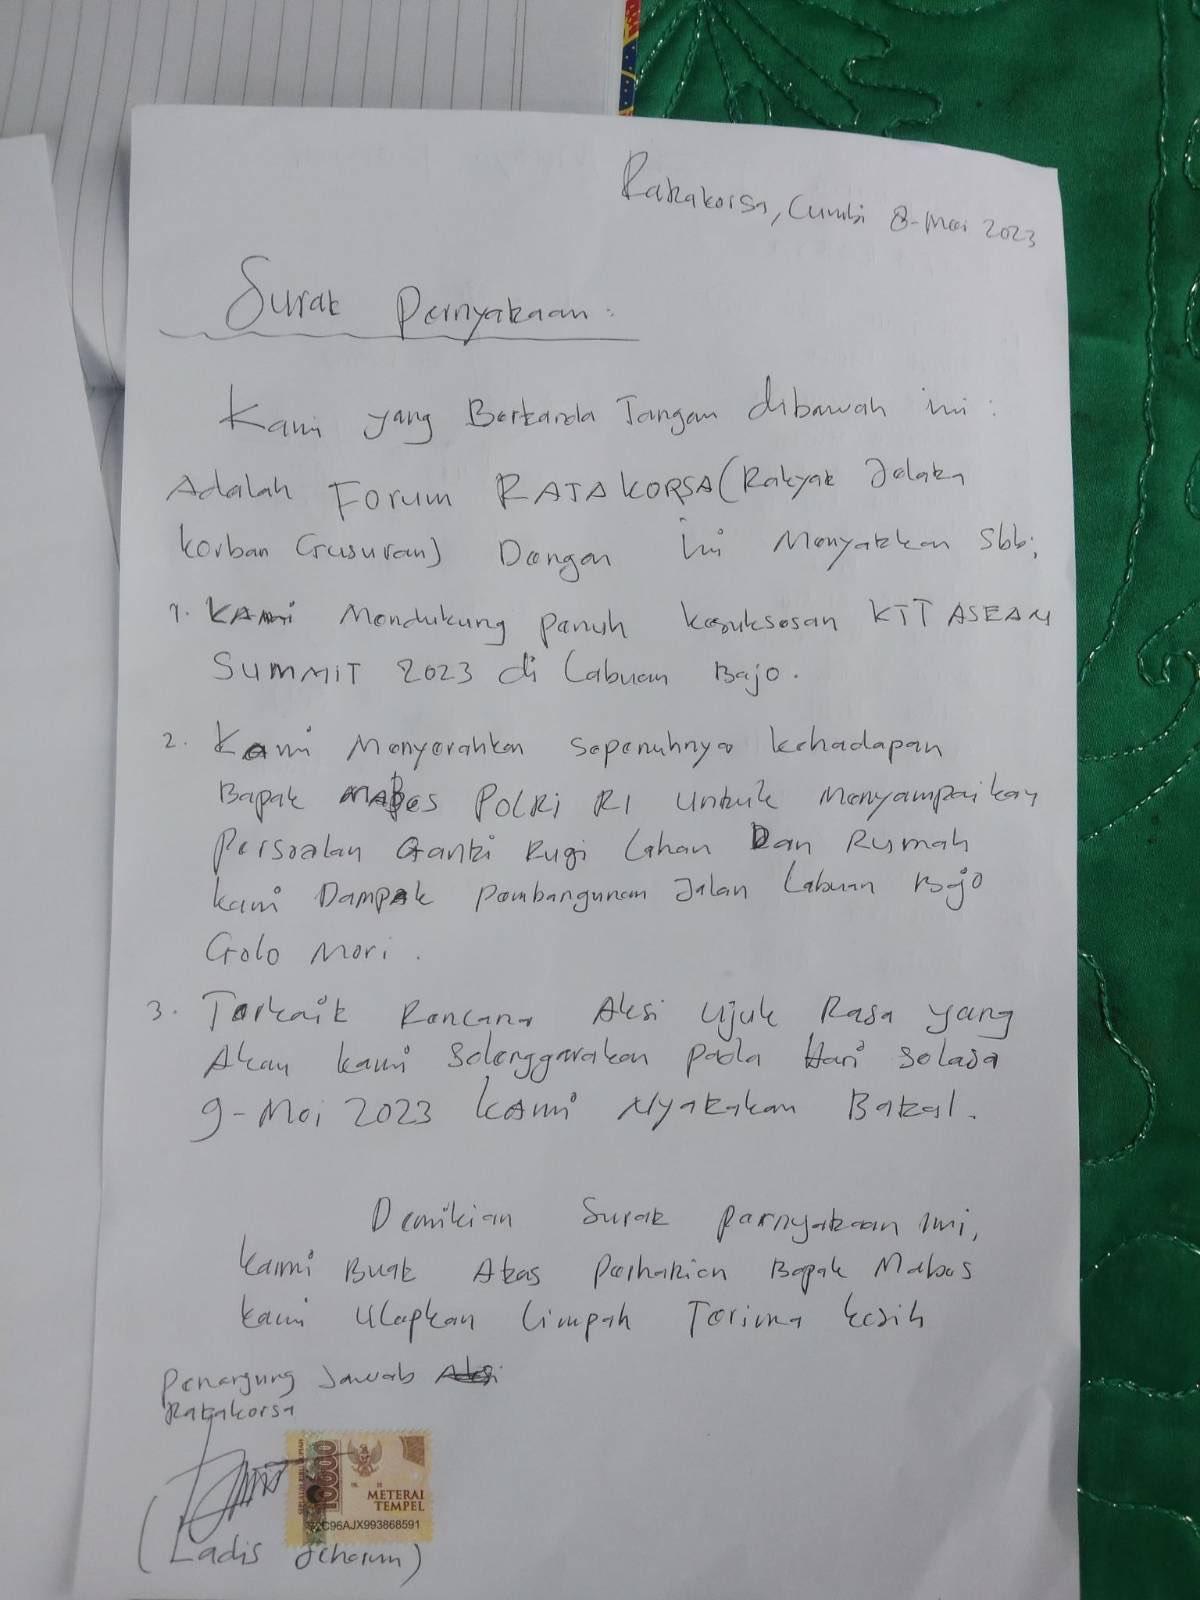 Ratakorsa, Cumbi 8-Mei 2023
Surat Pernyataan:
Kami yang Bertanda Tangan dibawah ini:
Adalah Forum RATAKORSA (Rakyat Jelata
korban Gusuran) Dengan ini Menyatkan Sbb;
1. KAMi Mendukung penuh kesuksesan KTT ASEAN
SUMMIT 2023 di Labuan Bajo.
2. Kami Menyerahkan sepenuhnya kehadapan
Bapak MABes POLRi RI untuk Menyampaikan
Persoalan Ganti Rugi Lahan Dan Rumah
kami Dampak pembangunan Jalan Labuan Bajo
Golo Mori.
3. Terkait Rencana Aksi Ujuk Rasa yang
Akan kami Selenggarakan pada Hari Selasa
9-Mei 2023 KAMi Nyatakan Batal.
Demikian Surat pernyataan ini,
kami Buat Atas perhatien Bapak Mabes
kami Ucapkan Limpah Terima kasih
Penangung Jawab
Ratakorsa
10000
METERAI
TEMPEL
C96AJX993868591
(Ladis Jeharun)